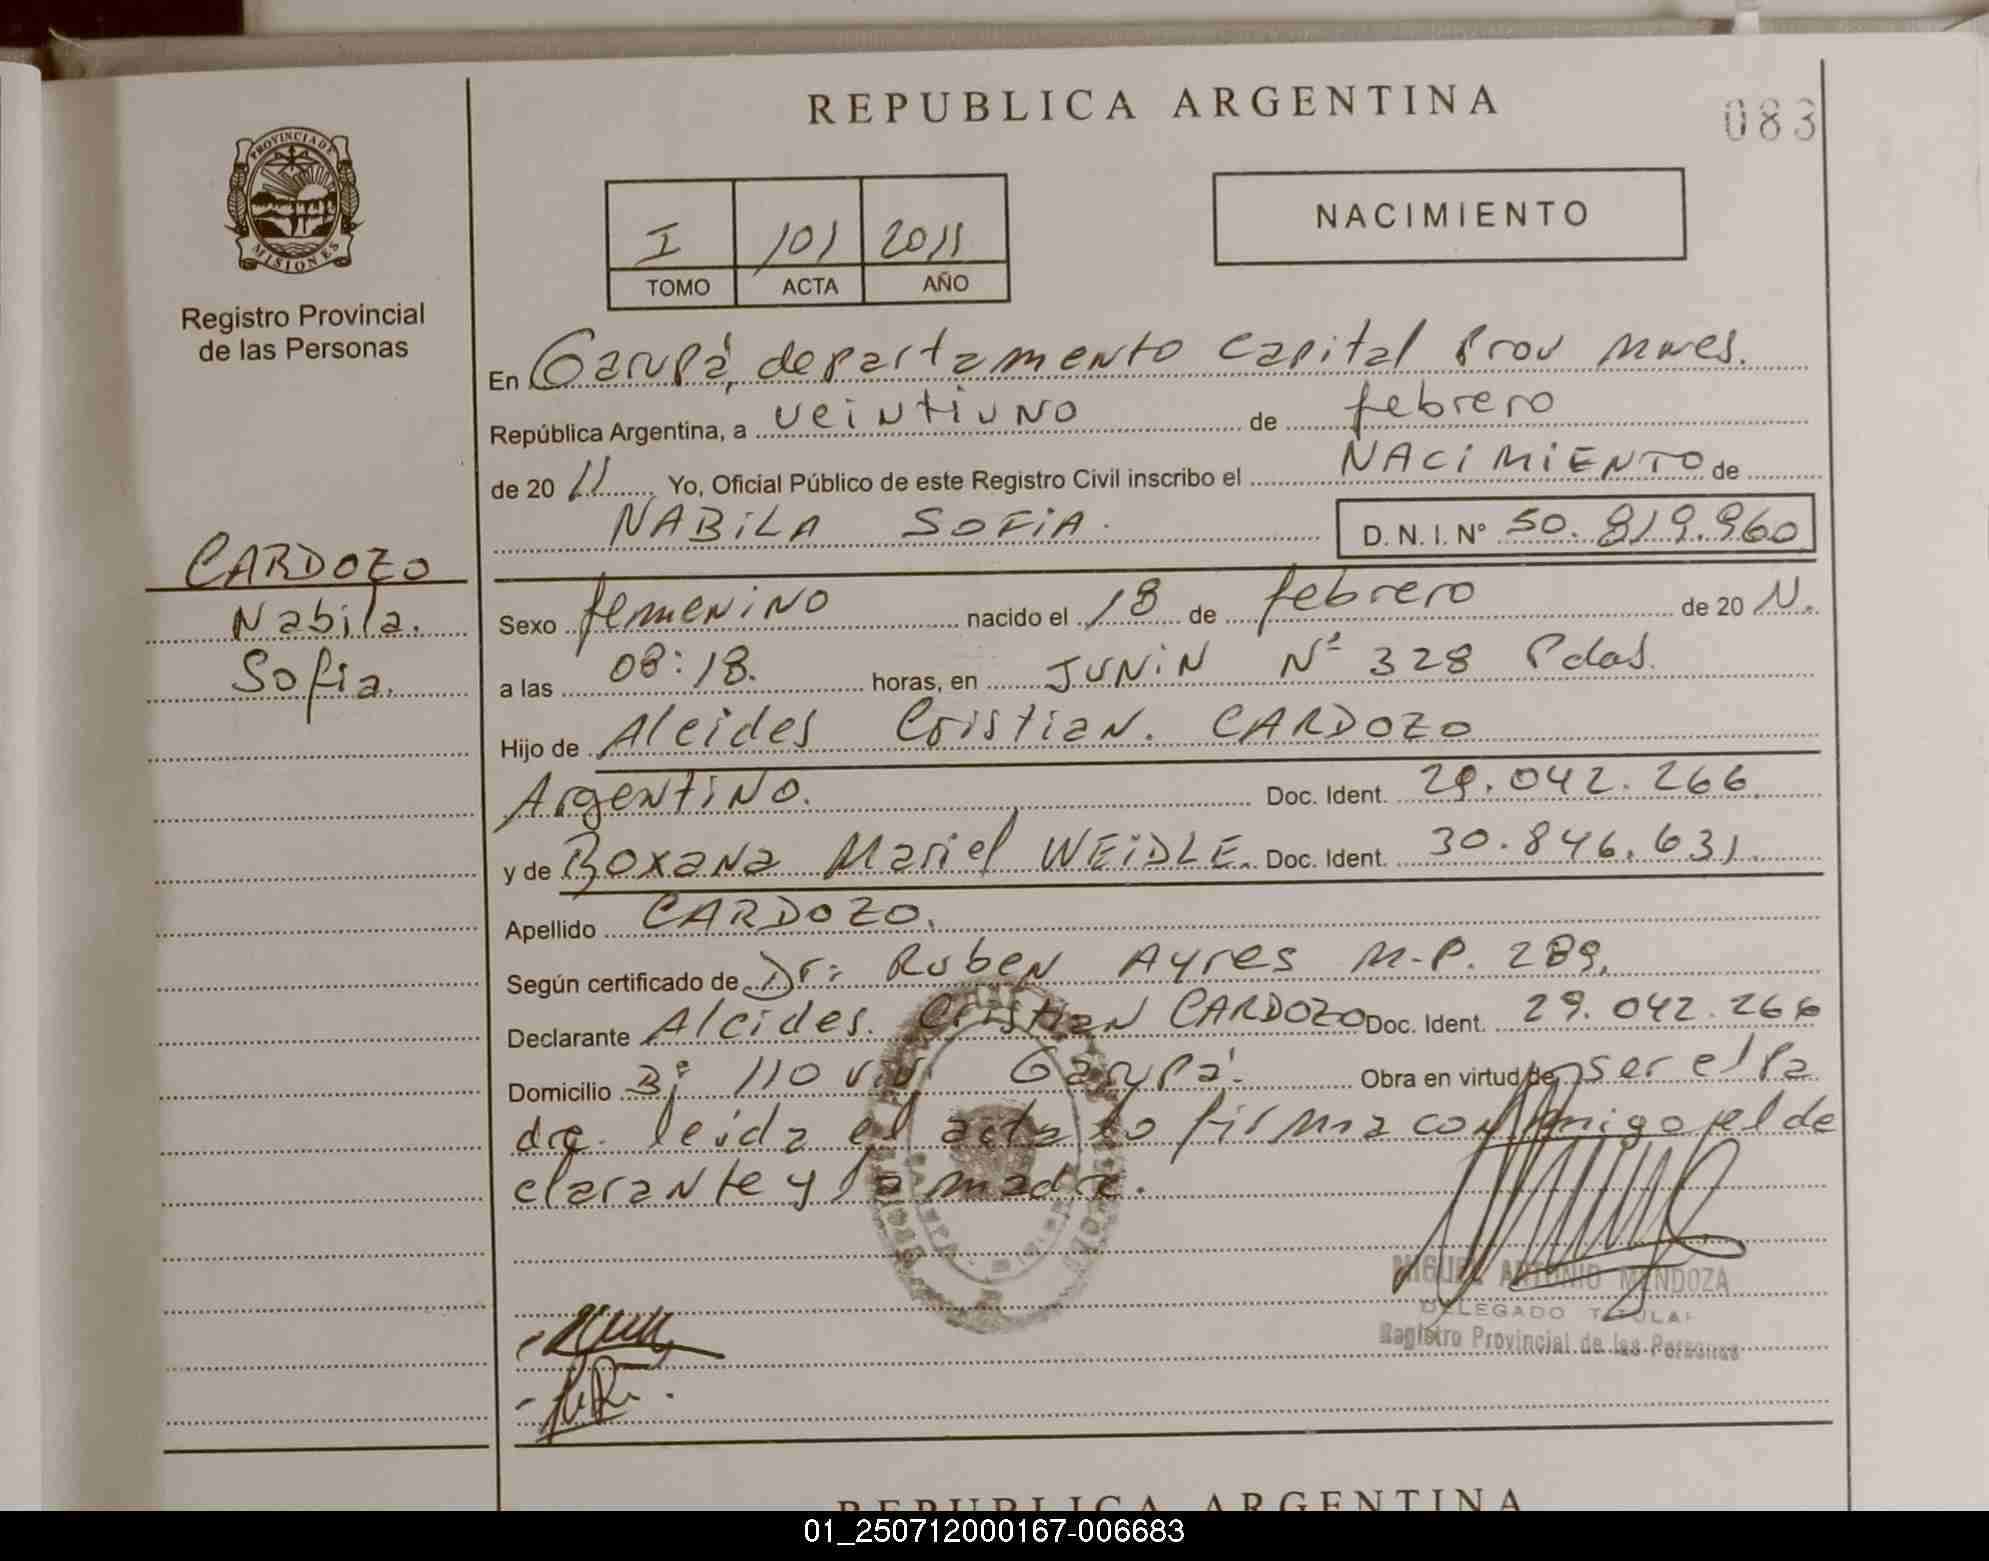 REPUBLICA ARGENTINA
083
PROVINCIA DE
MISIONES
Registro Provincial
de las Personas
I 101 2011
TOMO ACTA AÑO
NACIMIENTO
En Garupá, departamento Capital Prov Mnes.
República Argentina, a veintiuno de febrero
de 2011 Yo, Oficial Público de este Registro Civil inscribo el NACIMIENTO de
NABILA SOFIA. D. N. I. N° 50.819.960
CARDOZO
Nabila.
Sofia.
Sexo femenino nacido el 18 de febrero de 2011.
a las 08:18. horas, en JUNIN Nº 328 Pdas.
Hijo de Alcides Cristian. CARDOZO
Argentino. Doc. Ident. 29.042.266.
y de Roxana Mariel WEIDLE. Doc. Ident. 30.846.631.
Apellido CARDOZO.
Según certificado de Dr: Ruben Ayres M.P. 289.
Declarante Alcides. Cristian CARDOZO Doc. Ident. 29.042.266
Domicilio Bº 110 viv. Garupá. Obra en virtud de ser el pa
dre. leída el acta lo firma conmigo el de
clarante y la madre.
MIGUEL ANTONIO MENDOZA
DELEGADO TITULAR
Registro Provincial de las Personas
REPUBLICA ARGENTINA
01_250712000167-006683